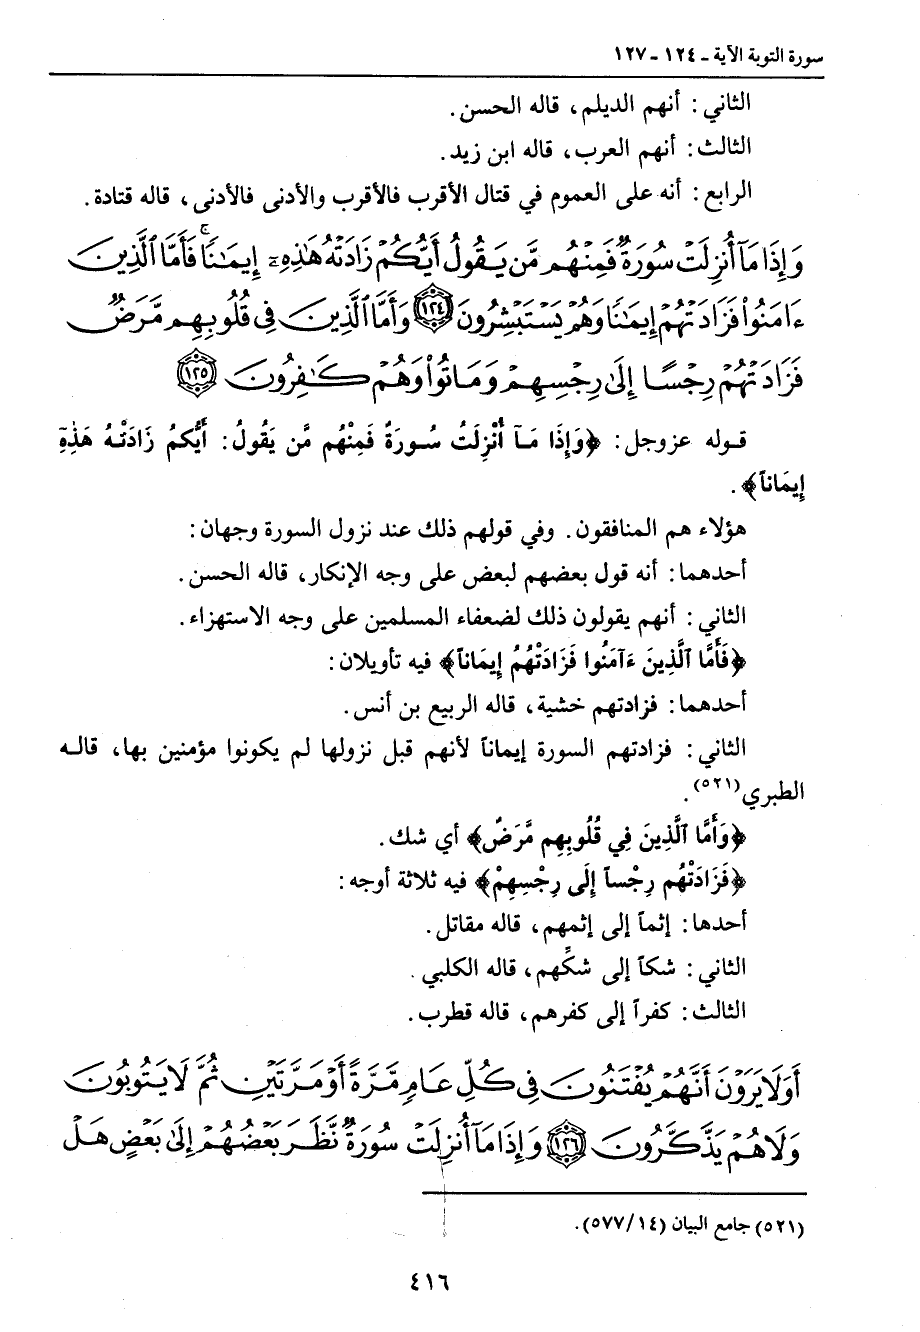 سورة التوبة الآية ـ ١٢٤ ـ ١٢٧
الثاني : أنهم الديلم، قاله الحسن .
الثالث : أنهم العرب، قاله ابن زيد .
الرابع : أنه على العموم في قتال الأقرب فالأقرب والأدنى فالأدنى ، قاله قتادة .
وَإِذَا مَآ أُنزِلَتْ سُورَةٌ فَمِنْهُم مَّن يَقُولُ أَيُّكُمْ زَادَتْهُ هَٰذِهِۦٓ إِيمَٰنًا ۚ فَأَمَّا ٱلَّذِينَ
ءَامَنُوا۟ فَزَادَتْهُمْ إِيمَٰنًا وَهُمْ يَسْتَبْشِرُونَ ﴿١٢٤﴾ وَأَمَّا ٱلَّذِينَ فِى قُلُوبِهِم مَّرَضٌ
فَزَادَتْهُمْ رِجْسًا إِلَىٰ رِجْسِهِمْ وَمَاتُوا۟ وَهُمْ كَٰفِرُونَ ﴿١٢٥﴾
قوله عزوجل : ﴿وَإِذَا مَآ أُنْزِلَتْ سُورَةٌ فَمِنْهُم مَّن يَقُولُ : أَيُّكُمْ زَادَتْهُ هَذِهِٓ
إِيمَاناً﴾ .
هؤلاء هم المنافقون . وفي قولهم ذلك عند نزول السورة وجهان :
أحدهما : أنه قول بعضهم لبعض على وجه الإنكار، قاله الحسن .
الثاني : أنهم يقولون ذلك لضعفاء المسلمين على وجه الاستهزاء .
﴿فَأَمَّا ٱلَّذِينَ ءَآمَنُوا فَزَادَتْهُمُ إِيمَاناً﴾ فيه تأويلان :
أحدهما : فزادتهم خشية، قاله الربيع بن أنس .
الثاني : فزادتهم السورة إيماناً لأنهم قبل نزولها لم يكونوا مؤمنين بها، قاله
الطبري(٥٢١) .
﴿وَأَمَّا ٱلَّذِينَ فِي قُلُوبِهِم مَّرَضٌ﴾ أي شك .
﴿فَزَادَتْهُم رِجْساً إِلَى رِجْسِهِمْ﴾ فيه ثلاثة أوجه :
أحدها : إثماً إلى إثمهم، قاله مقاتل .
الثاني : شكاً إلى شكِّهم، قاله الكلبي .
الثالث : كفراً إلى كفرهم، قاله قطرب .
أَوَلَا يَرَوْنَ أَنَّهُمْ يُفْتَنُونَ فِى كُلِّ عَامٍ مَّرَّةً أَوْ مَرَّتَيْنِ ثُمَّ لَا يَتُوبُونَ
وَلَا هُمْ يَذَّكَّرُونَ ﴿١٢٦﴾ وَإِذَا مَآ أُنزِلَتْ سُورَةٌ نَّظَرَ بَعْضُهُمْ إِلَىٰ بَعْضٍ هَلْ
(٥٢١) جامع البيان (٥٧٧/١٤) .
٤١٦